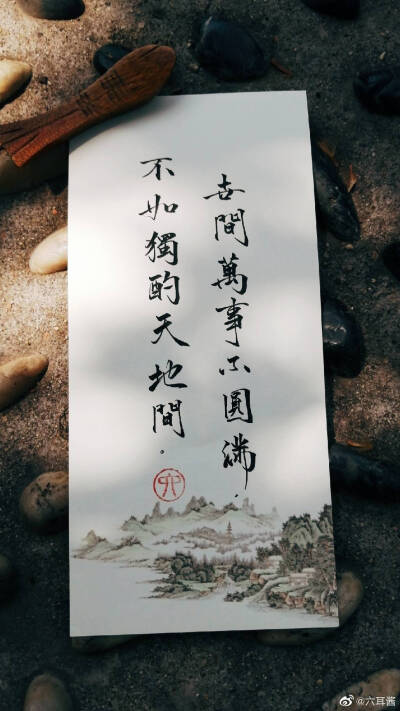 世間萬事不圓滿，
不如獨酌天地間。
六
@六耳酱